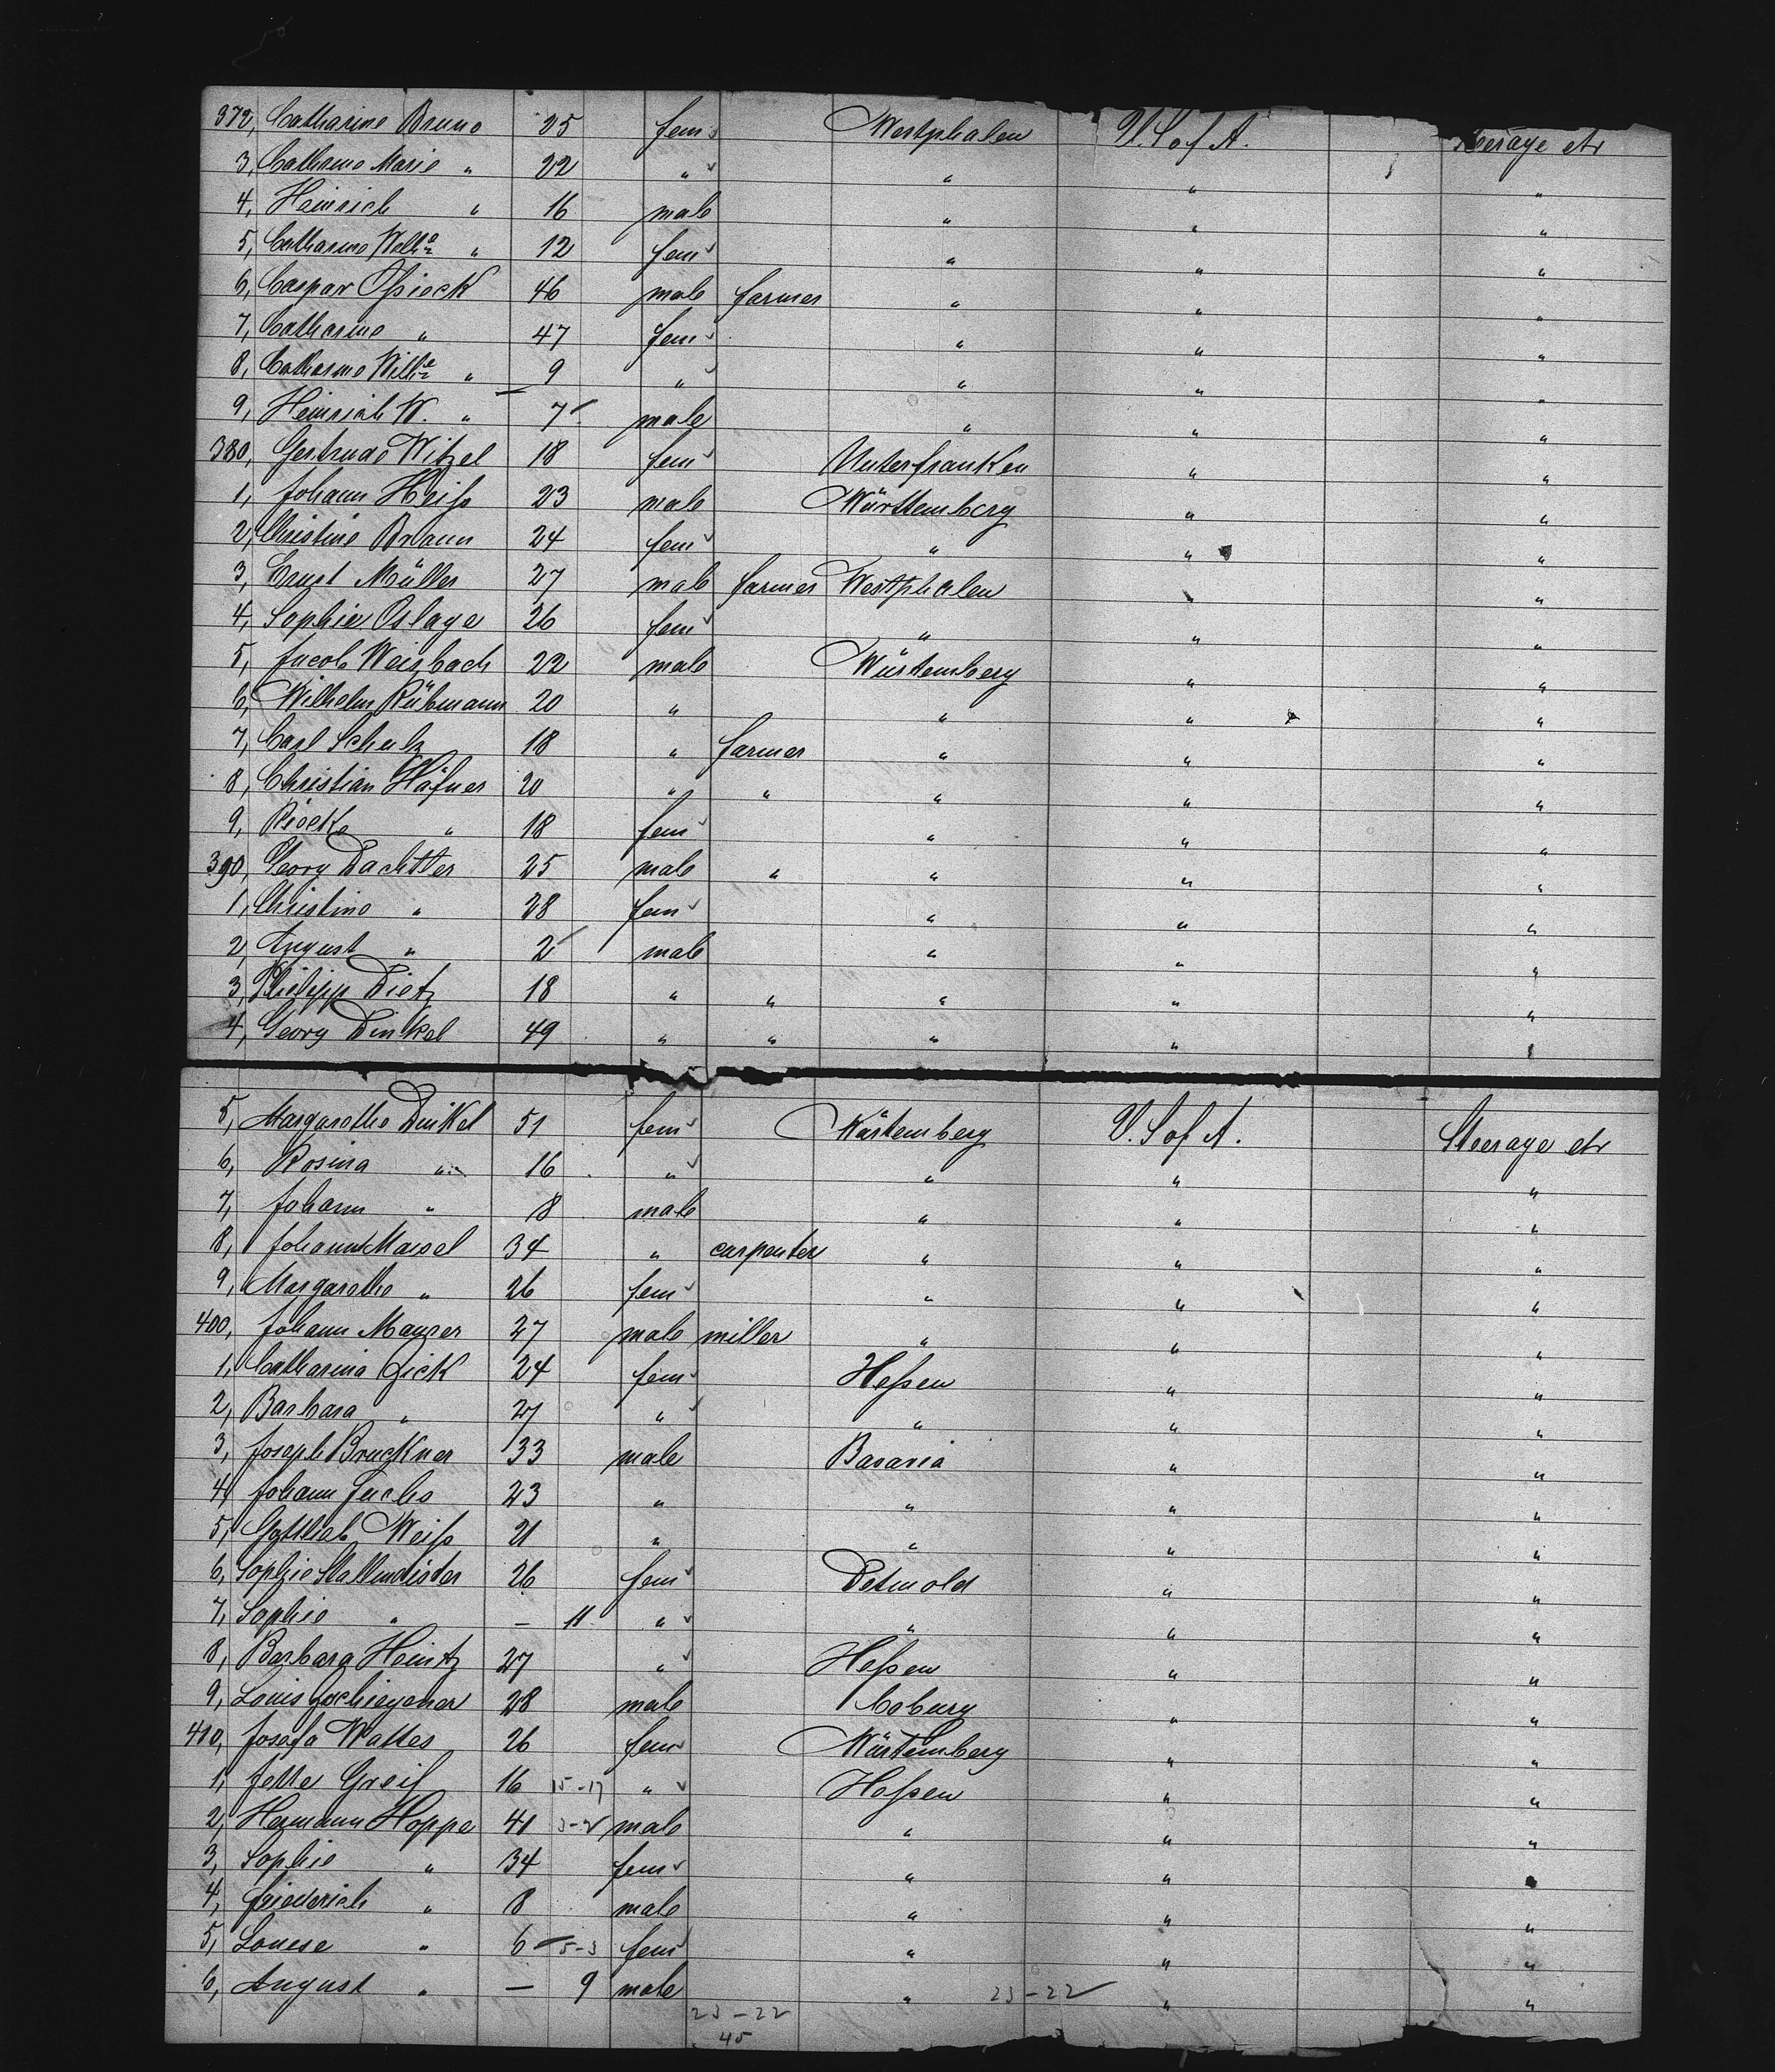 372, Catharine Bruno 25 fem Westphalen U. S of A. Steerage etr
3, Catharine Marie " 22 " " " "
4, Heinrich " 16 male " " "
5, Catharine Wilhe " 12 fem " " "
6, Caspar Ossieck 46 male farmer " " "
7, Catharine " 47 fem " " "
8, Catharine Wilhe " 9 " " " "
9, Heinrich W. " 7 male " " "
380, Gertrude Witzel 18 fem Unterfranken " "
1, Johann Heiss 23 male Württemberg " "
2, Christine Braun 24 fem " " "
3, Ernst Müller 27 male farmer Westphalen " "
4, Sophie Oslage 26 fem " " "
5, Jacob Weisbach 22 male Würtemberg " "
6, Wilhelm Rübmann 20 " " " "
7, Carl Schulz 18 " farmer " " "
8, Christian Häfner 20 " " " " "
9, Riecke " 18 fem " " "
390, Georg Dachtler 25 male " " " "
1, Christine " 28 fem " " "
2, August " 2 male " " "
3, Philipp Dietz 18 " " " " "
4, Georg Dinkel 49 " " " " "
5, Margarethe Dinkel 51 fem Würtemberg U. S of A. Steerage etr
6, Rosina " 16 " " " "
7, Johann " 8 male " " "
8, Johann Maisel 34 " carpenter " " "
9, Margarethe " 26 fem " " "
400, Johann Maurer 27 male miller " " "
1, Catharina Zick 24 fem Hessen " "
2, Barbara " 27 " " " "
3, Joseph Bruckner 33 male Bavaria " "
4, Johann Fuchs 23 " " " "
5, Gottlieb Weiss 21 " " " "
6, Sophie Stallmeister 26 fem Detmold " "
7, Sophie " — 11 " " " "
8, Barbara Heintz 27 " Hessen " "
9, Louis 28 male Coburg " "
410, Josefa Walter 26 fem Würtemberg " "
1, Jette Greif 16 15-17 " Hessen " "
2, Hermann Hoppe 41 3-2 male " " "
3, Sophie " 34 fem " " "
4, Friederich " 8 male " " "
5, Louese " 6 5-3 fem " " "
6, August " — 9 male " 23-22 " "
23-22
45